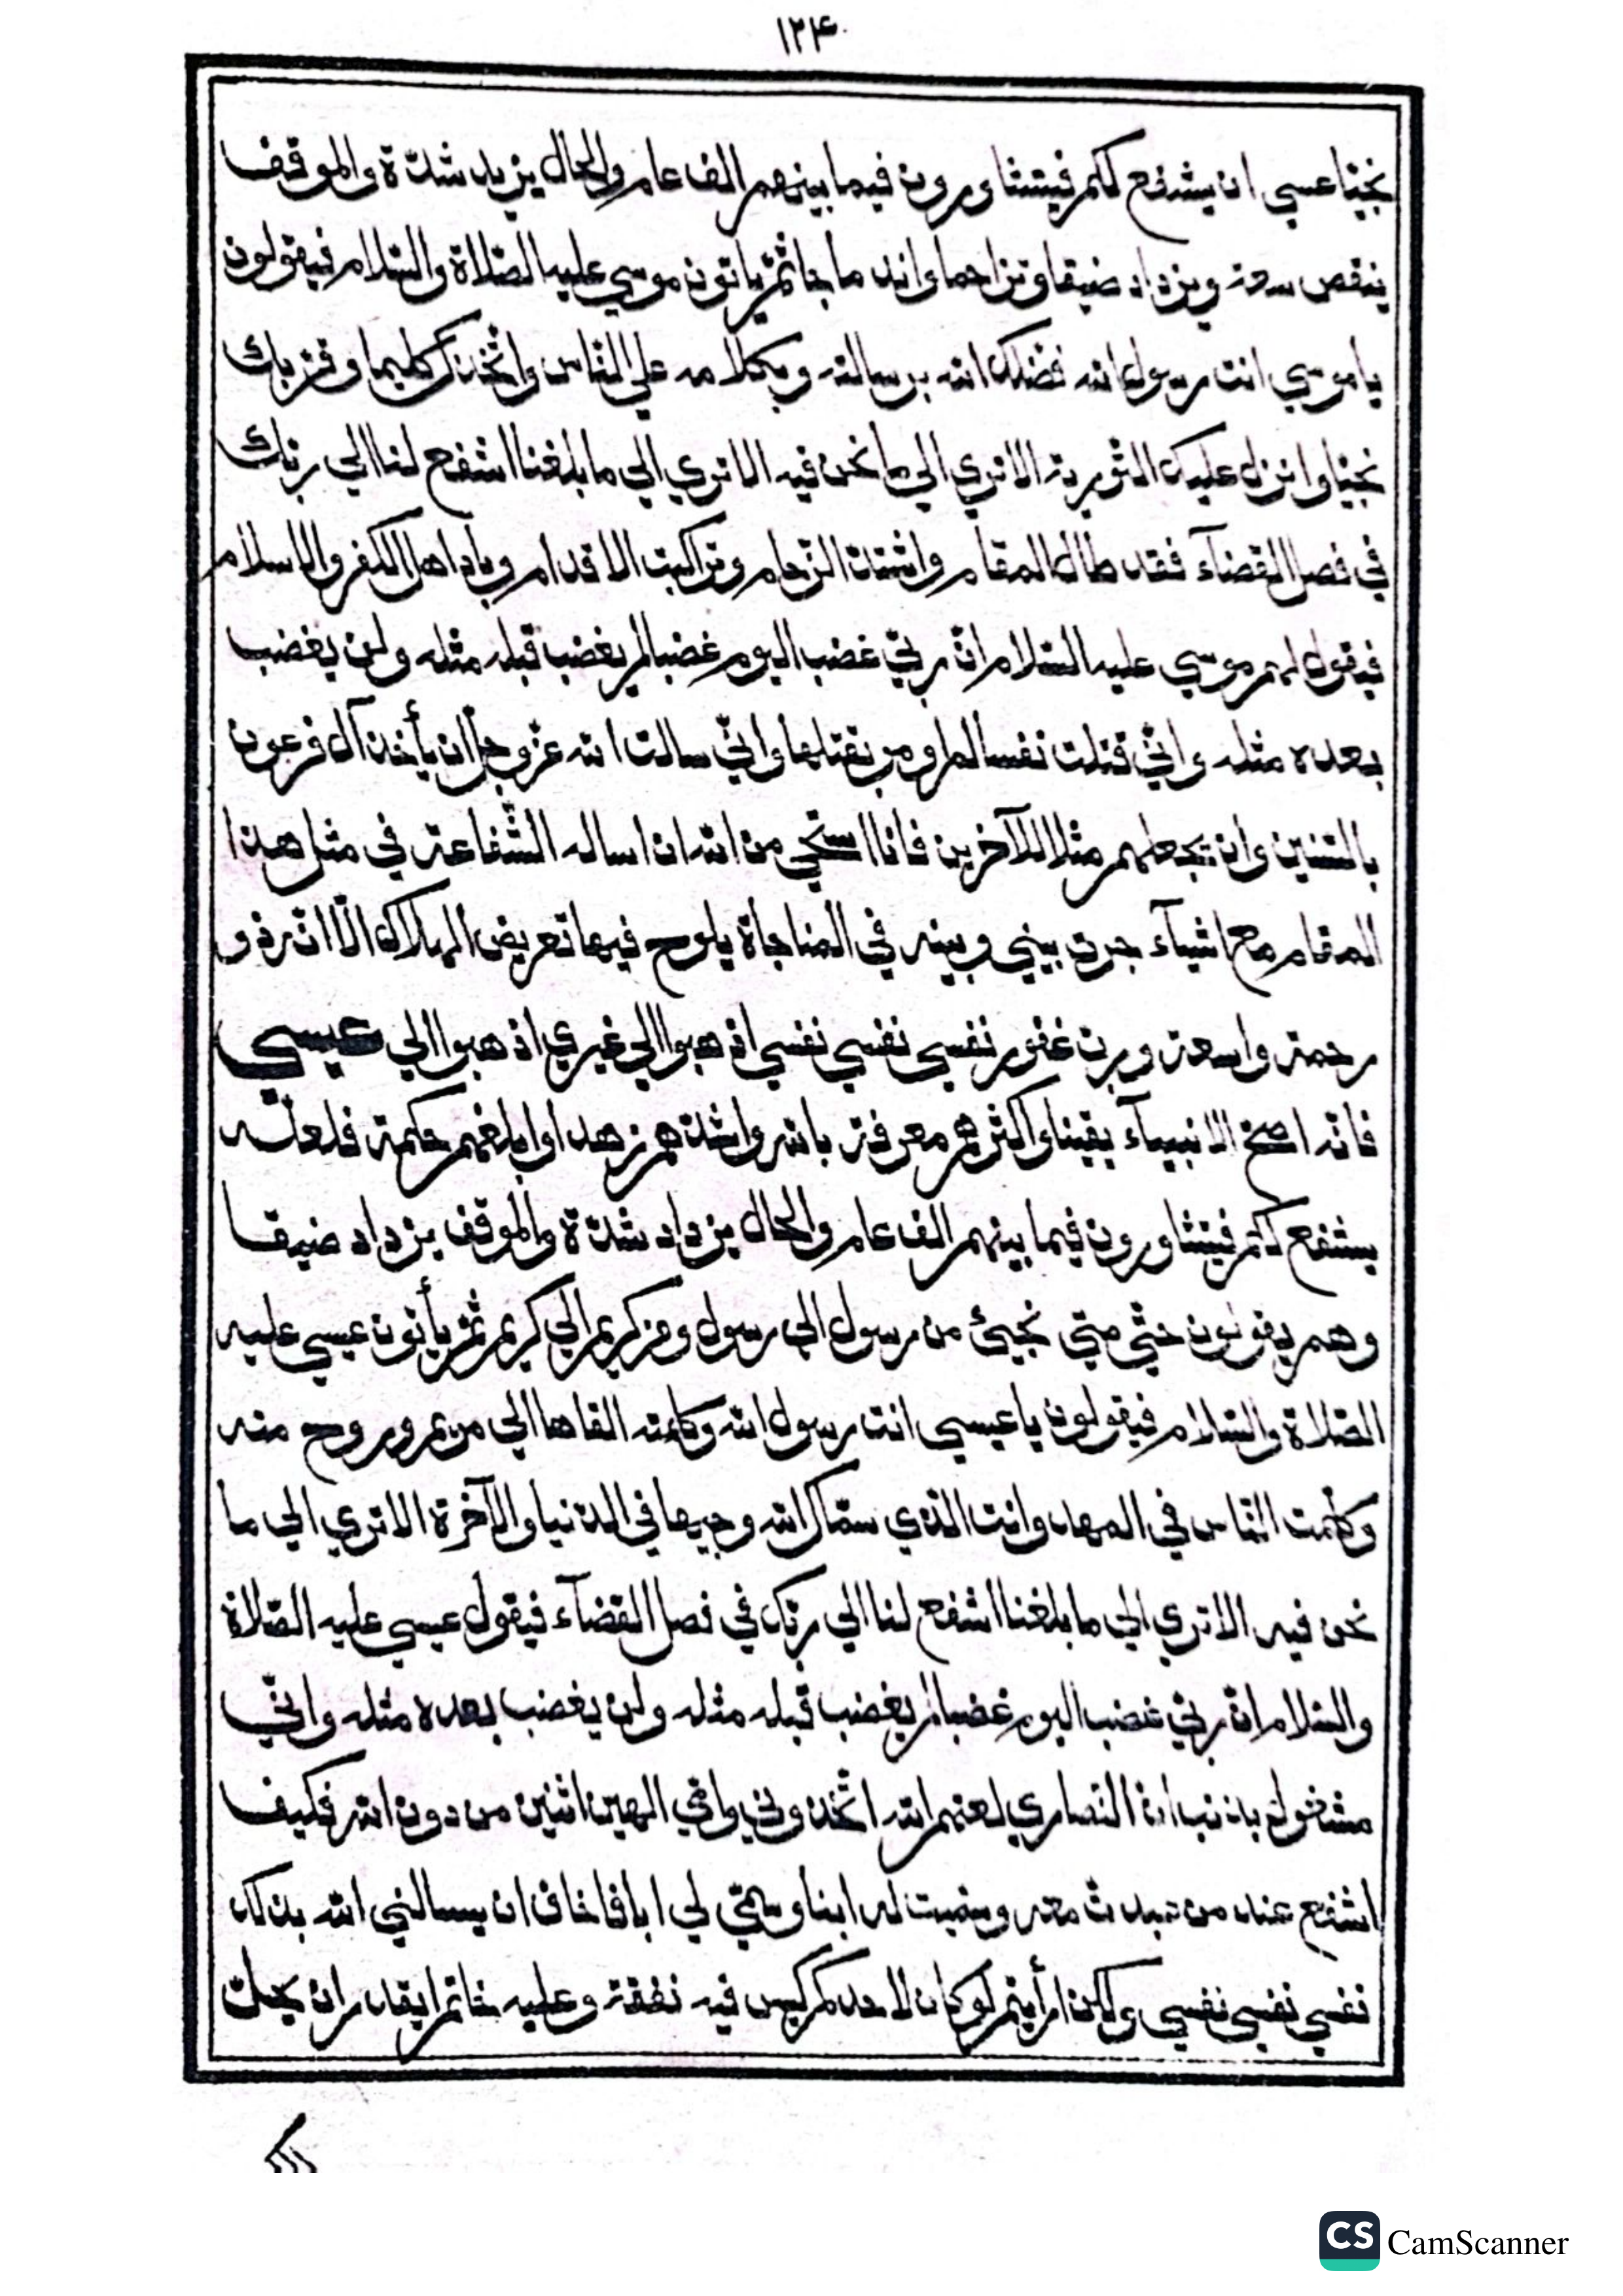 ١٢٤
نجيّا عسي ان يشفع لكم فيتشاورون فيما بينهم الف عام والحال يزيد شدّة والموقف
ينقص سعة ويزداد ضيقا وتزاحما واند ماجا ثمّ ياتون موسي عليه الصّلاة والسّلام فيقولون
يا موسي انت رسول الله فضلك الله برسالته وبكلامه علي النّاس واتّخذك كليما وقرّبك
نجيّا وانزل عليك التّورية الا تري الي ما نحن فيه الا تري الي ما بلغنا اشفع لنا الي ربّك
في فصل القضآء فقد طال المقام واشتدّ الزّحام وتراكبت الاقدام وباد اهل الكفر والاسلام
فيقول لهم موسي عليه السّلام انّ ربّي غضب اليوم غضبا لم يغضب قبله مثله ولن يغضب
بعده مثله وانّي قتلت نفسا لم اومر بقتلها وانّي سالت الله عزّ وجلّ ان يأخذ آل فرعون
بالسّنين وان يجعلهم مثلا للآخرين فانا استحي من الله ان اساله الشّفاعة في مثل هذا
المقام مع اشيآء جرت بيني وبينه في المناجاة يلوح فيها تعريض الهلاك الّا انّه ذو
رحمة واسعة وربّ غفور نفسي نفسي نفسي اذهبوا الي غيري اذهبوا الي عيسي
فانّه اصحّ الانبيآء يقينا واكثرهم معرفة بالله واشدّهم زهدا وابلغهم حكمة فلعلّه
يشفع لكم فيتشاورون فيما بينهم الف عام والحال يزداد شدّة والموقف يزداد ضيقا
وهم يقولون حتّي متي نجيئ من رسول الي رسول ومن كريم الي كريم ثمّ يأتون عيسي عليه
الصّلاة والسّلام فيقولون يا عيسي انت رسول الله وكلمته القاها الي مريم وروح منه
وكلّمت النّاس في المهد وانت الّذي سمّاك الله وجيها في الدّنيا والآخرة الا تري الي ما
نحن فيه الا تري الي ما بلغنا اشفع لنا الي ربّك في فصل القضآء فيقول عيسي عليه الصّلاة
والسّلام انّ ربّي غضب اليوم غضبا لم يغضب قبله مثله ولن يغضب بعده مثله وانّي
مشغول بذنب انّ النّصاري لعنهم الله اتّخذوني وامّي الهين اثنين من دون الله فكيف
اشفع عند من عبدت معه وسمّيت له ابنا وسمّي لي ابا فاخاف ان يسالني الله بذلك
نفسي نفسي نفسي ولكن ارأيتم لو كان لاحدكم كيس فيه نفقة وعليه خاتم ايقدر ان يحلّ
CS CamScanner